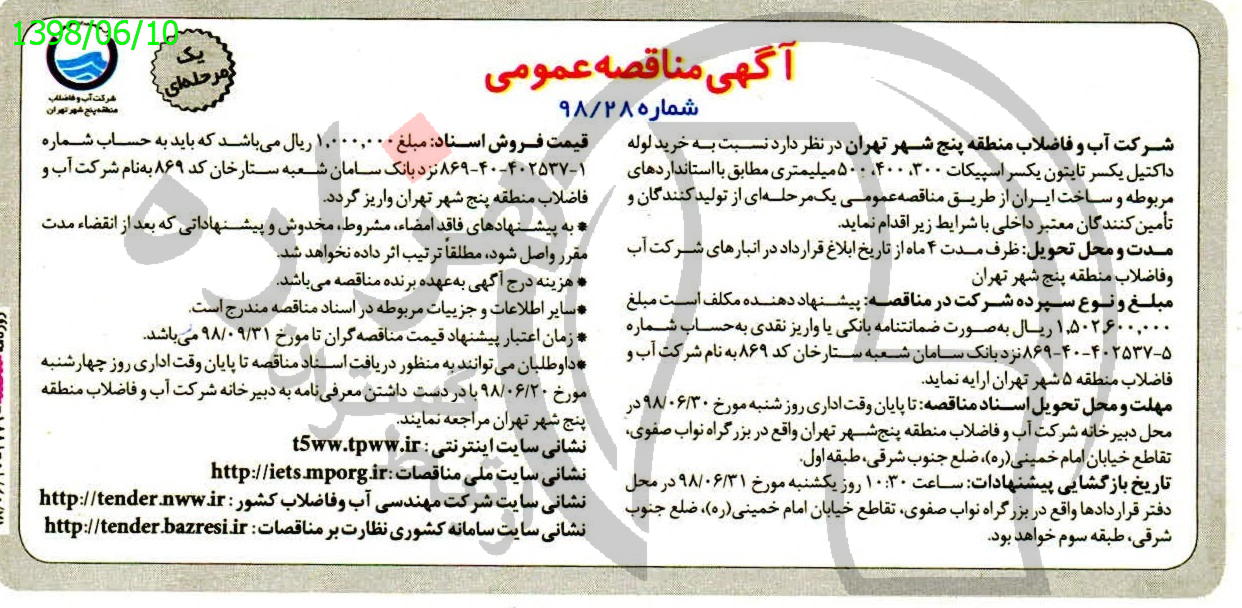 1398/06/10
یک
مرحله‌ای
شرکت آب و فاضلاب
منطقه پنج شهر تهران
آگهی مناقصه عمومی
شماره ۹۸/۲۸
شرکت آب و فاضلاب منطقه پنج شهر تهران در نظر دارد نسبت به خرید لوله
داکتیل یکسر تایتون یکسر اسپیکات ۳۰۰، ۴۰۰، ۵۰۰ میلیمتری مطابق با استانداردهای
مربوطه و ساخت ایران از طریق مناقصه‌عمومی یک‌مرحله‌ای از تولیدکنندگان و
تأمین‌کنندگان معتبر داخلی با شرایط زیر اقدام نماید.
مدت و محل تحویل: ظرف مدت ۴ ماه از تاریخ ابلاغ قرارداد در انبارهای شرکت آب
وفاضلاب منطقه پنج شهر تهران
مبلغ و نوع سپرده شرکت در مناقصه: پیشنهاد دهنده مکلف است مبلغ
۱,۵۰۲,۶۰۰,۰۰۰ ریال به‌صورت ضمانتنامه بانکی یا واریز نقدی به‌حساب شماره
۸۶۹-۴۰-۴۰۲۵۳۷-۵ نزد بانک سامان شعبه ستارخان کد ۸۶۹ به نام شرکت آب و
فاضلاب منطقه ۵ شهر تهران ارایه نماید.
مهلت و محل تحویل اسناد مناقصه: تا پایان وقت اداری روز شنبه مورخ ۹۸/۰۶/۳۰ در
محل دبیرخانه شرکت آب و فاضلاب منطقه پنج‌شهر تهران واقع در بزرگراه نواب صفوی،
تقاطع خیابان امام خمینی(ره)، ضلع جنوب شرقی، طبقه اول.
تاریخ بازگشایی پیشنهادات: ساعت ۱۰:۳۰ روز یکشنبه مورخ ۹۸/۰۶/۳۱ در محل
دفتر قراردادها واقع در بزرگراه نواب صفوی، تقاطع خیابان امام خمینی(ره)، ضلع جنوب
شرقی، طبقه سوم خواهد بود.
قیمت فروش اسناد: مبلغ ۱,۰۰۰,۰۰۰ ریال می‌باشد که باید به حساب شماره
۸۶۹-۴۰-۴۰۲۵۳۷-۱ نزد بانک سامان شعبه ستارخان کد ۸۶۹ به‌نام شرکت آب و
فاضلاب منطقه پنج شهر تهران واریز گردد.
* به پیشنهادهای فاقد امضاء، مشروط، مخدوش و پیشنهاداتی که بعد از انقضاء مدت
مقرر واصل شود، مطلقاً ترتیب اثر داده نخواهد شد.
* هزینه درج آگهی به‌عهده برنده مناقصه می‌باشد.
* سایر اطلاعات و جزییات مربوطه در اسناد مناقصه مندرج است.
* زمان اعتبار پیشنهاد قیمت مناقصه‌گران تا مورخ ۹۸/۰۹/۳۱ می‌باشد.
* داوطلبان می‌توانند به منظور دریافت اسناد مناقصه تا پایان وقت اداری روز چهارشنبه
مورخ ۹۸/۰۶/۲۰ با در دست داشتن معرفی‌نامه به دبیرخانه شرکت آب و فاضلاب منطقه
پنج شهر تهران مراجعه نمایند.
نشانی سایت اینترنتی: t5ww.tpww.ir
نشانی سایت ملی مناقصات: http://iets.mporg.ir
نشانی سایت شرکت مهندسی آب وفاضلاب کشور: http://tender.nww.ir
نشانی سایت سامانه کشوری نظارت بر مناقصات: http://tender.bazresi.ir